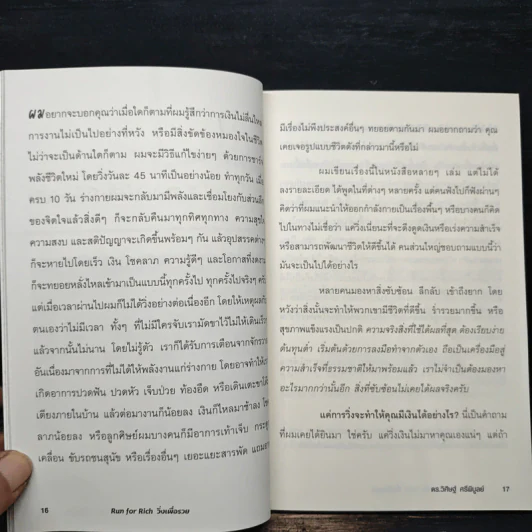 ผมอยากจะบอกคุณว่าเมื่อใดก็ตามที่ผมรู้สึกว่าการเงินไม่ลื่นไหล
การงานไม่เป็นไปอย่างที่หวัง หรือมีสิ่งขัดข้องหมองใจในชีวิต
ไม่ว่าจะเป็นด้านใดก็ตาม ผมจะมีวิธีแก้ไขง่ายๆ ด้วยการชาร์จ
พลังชีวิตใหม่ โดยวิ่งวันละ 45 นาทีเป็นอย่างน้อย ทำทุกวัน
ครบ 10 วัน ร่างกายผมจะกลับมามีพลังและเชื่อมโยงกับส่วนลึก
ของจิตใจแล้วสิ่งดีๆ ก็จะกลับคืนมาทุกทิศทุกทาง ความสุข
ความสงบ และสติปัญญาจะเกิดขึ้นพร้อมๆ กัน แล้วอุปสรรคต่างๆ
ก็จะหายไปโดยเร็ว เงิน โชคลาภ ความรู้ดีๆ และโอกาสที่งดงาม
ก็จะทยอยหลั่งไหลเข้ามาเป็นแบบนี้ทุกครั้งไป ทุกครั้งไปจริงๆ
แต่เมื่อเวลาผ่านไปผมก็ไม่ได้วิ่งอย่างต่อเนื่องอีก โดยให้เหตุผลกับ
ตนเองว่าไม่มีเวลา ทั้งๆ ที่ไม่มีใครจับเรามัดขาไว้ไม่ให้เดินเร็ว
แล้วจากนั้นไม่นาน โดยไม่รู้ตัว เราก็ได้รับการเตือนจากจักรวาล
อันเนื่องมาจากการที่ไม่ได้ให้พลังงานแก่ร่างกาย โดยอาจทำให้
เกิดอาการปวดฟัน ปวดหัว เจ็บป่วย ท้องอืด หรือเดินเตะขาโต๊ะ
เตียงภายในบ้าน แล้วต่อมางานก็น้อยลง เงินก็ไหลมาช้าลง
ลาภน้อยลง หรือลูกศิษย์ผมบางคนก็มีอาการเท้าเจ็บ
เคลื่อน ขับรถชนสุนัข หรือเรื่องอื่นๆ เยอะแยะสารพัด แถม
16 Run for Rich วิ่งเพื่อรวย
มีเรื่องไม่พึงประสงค์อื่นๆ ทยอยตามกันมา ผมอยากถามว่า คุณ
เคยเจอรูปแบบชีวิตดังที่กล่าวมานี้หรือไม่
ผมเขียนเรื่องนี้ในหนังสือหลายๆ เล่ม แต่ไม่ได้
ลงรายละเอียด ได้พูดในที่ต่างๆ หลายครั้ง แต่คนฟังไปก็ฟังผ่านๆ
คิดว่าที่ผมแนะนำให้ออกกำลังกายเป็นเรื่องพื้นๆ หรือบางคนก็คิด
ไปในทางไม่เชื่อว่า แค่วิ่งเนี่ยนะที่จะดึงดูดเงินหรือเร่งความสำเร็จ
หรือสามารถพัฒนาชีวิตให้ดีขึ้นได้ คนส่วนใหญ่ชอบถามแบบนี้ว่า
มันจะเป็นไปได้อย่างไร
หลายคนมองหาสิ่งซับซ้อน ลึกลับ เข้าถึงยาก โดย
หวังว่าสิ่งนั้นจะทำให้พวกเขามีชีวิตที่ดีขึ้น ร่ำรวยมากขึ้น หรือ
สุขภาพแข็งแรงเป็นปกติ ความจริงสิ่งที่ใช้ได้ผลที่สุด ต้องเรียบง่าย
ต้นทุนต่ำ เริ่มต้นด้วยการลงมือทำจากตัวเอง ถือเป็นเครื่องมือสู่
ความสำเร็จที่ธรรมชาติให้มาพร้อมแล้ว เราไม่จำเป็นต้องมองหา
อะไรมากกว่านั้นอีก สิ่งที่ซับซ้อนไม่เคยได้ผลจริงครับ
แต่การวิ่งจะทำให้คุณมีเงินได้อย่างไร? นี่เป็นคำถาม
ที่ผมเคยได้ยินมา ใช่ครับ แค่วิ่งเงินไม่มาหาคุณเองแน่ๆ แต่ถ้า
ดร.วิศิษฐ์ ศรีพิบูลย์ 17